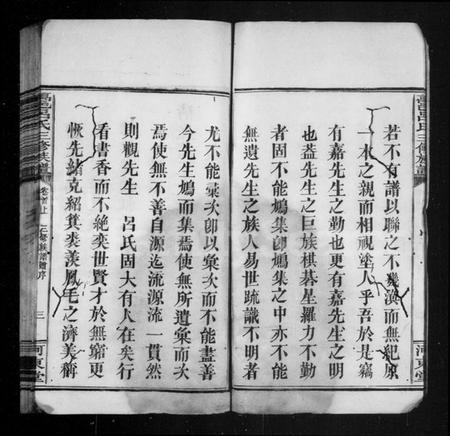 若不有譜以聯之不幾渙而無紀原
一本之親而相視塗人乎吾於是竊
有嘉先生之勤也更有嘉先生之明
也蓋先生之巨族棋碁星羅力不勤
者固不能鳩集之中亦不能
無遺先生之族人易世疏識不明者
尤不能彙次即以彙次而不能盡善
今先生鳩而集焉使無所遺彙而次
焉使無不善自源迄流源流一貫然
則觀先生 呂氏固大有人在矣行
看書香而不絕奕世賢才於無窮更
恢先緒克紹箕裘羨鳳毛之濟美衛
呂氏三修族譜
卷首上
三
河東堂